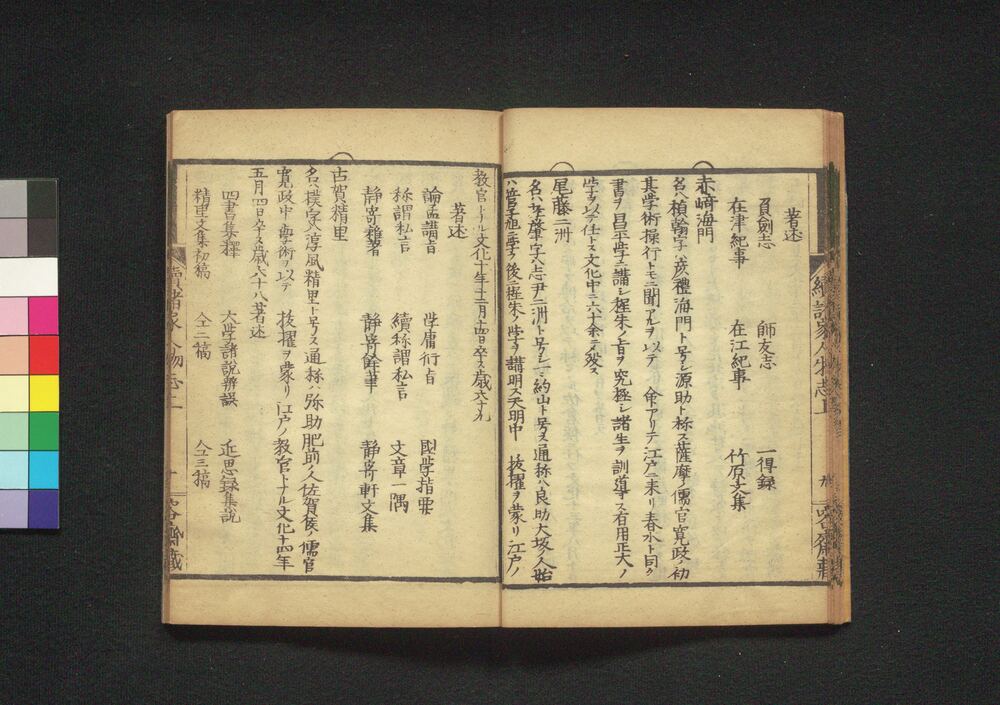 著述
負劍志 師友志 一得録
在津紀事 在江紀事 竹原文集
赤崎海門
名ハ楨幹字ハ彦禮海門ト号シ源助ト称ス薩摩ノ儒官寛政ノ初
其学術操行トモニ聞アルヲ以テ 命アリテ江戸ニ来リ春水ト同ク
書ヲ昌平学ニ講シ程朱ノ旨ヲ究極シ諸生ヲ訓導ス有用正大ノ
学ヲ以テ任トス文化中ニ六十余ニテ殁ス
尾藤二洲
名ハ孝肇字ハ志尹二洲ト号シ又約山ト号ス通称ハ良助大坂ノ人始
ハ管子旭ニ学ヒ後ニ程朱ノ学ヲ講明ス天明中 抜擢ヲ蒙リ江戸ノ
續諸家人物志上
教官トナル文化十年十二月十四日卒ス歳六十九
著述
論孟講旨 学庸衍旨 國学指要
称謂私言 續称謂私言 文章一隅
静寄雜著 静寄餘筆 静寄軒文集
古賀精里
名ハ樸字ハ淳風精里ト号ス通称ハ弥助肥前ノ人佐賀侯ノ儒官
寛政中 学術ヲ以テ 抜擢ヲ蒙リ江戸ノ教官トナル文化十四年
五月四日卒ス歳六十八著述
四書集釋 大学諸説辨誤 近思録集説
精里文集初稿 仝二稿 仝三稿